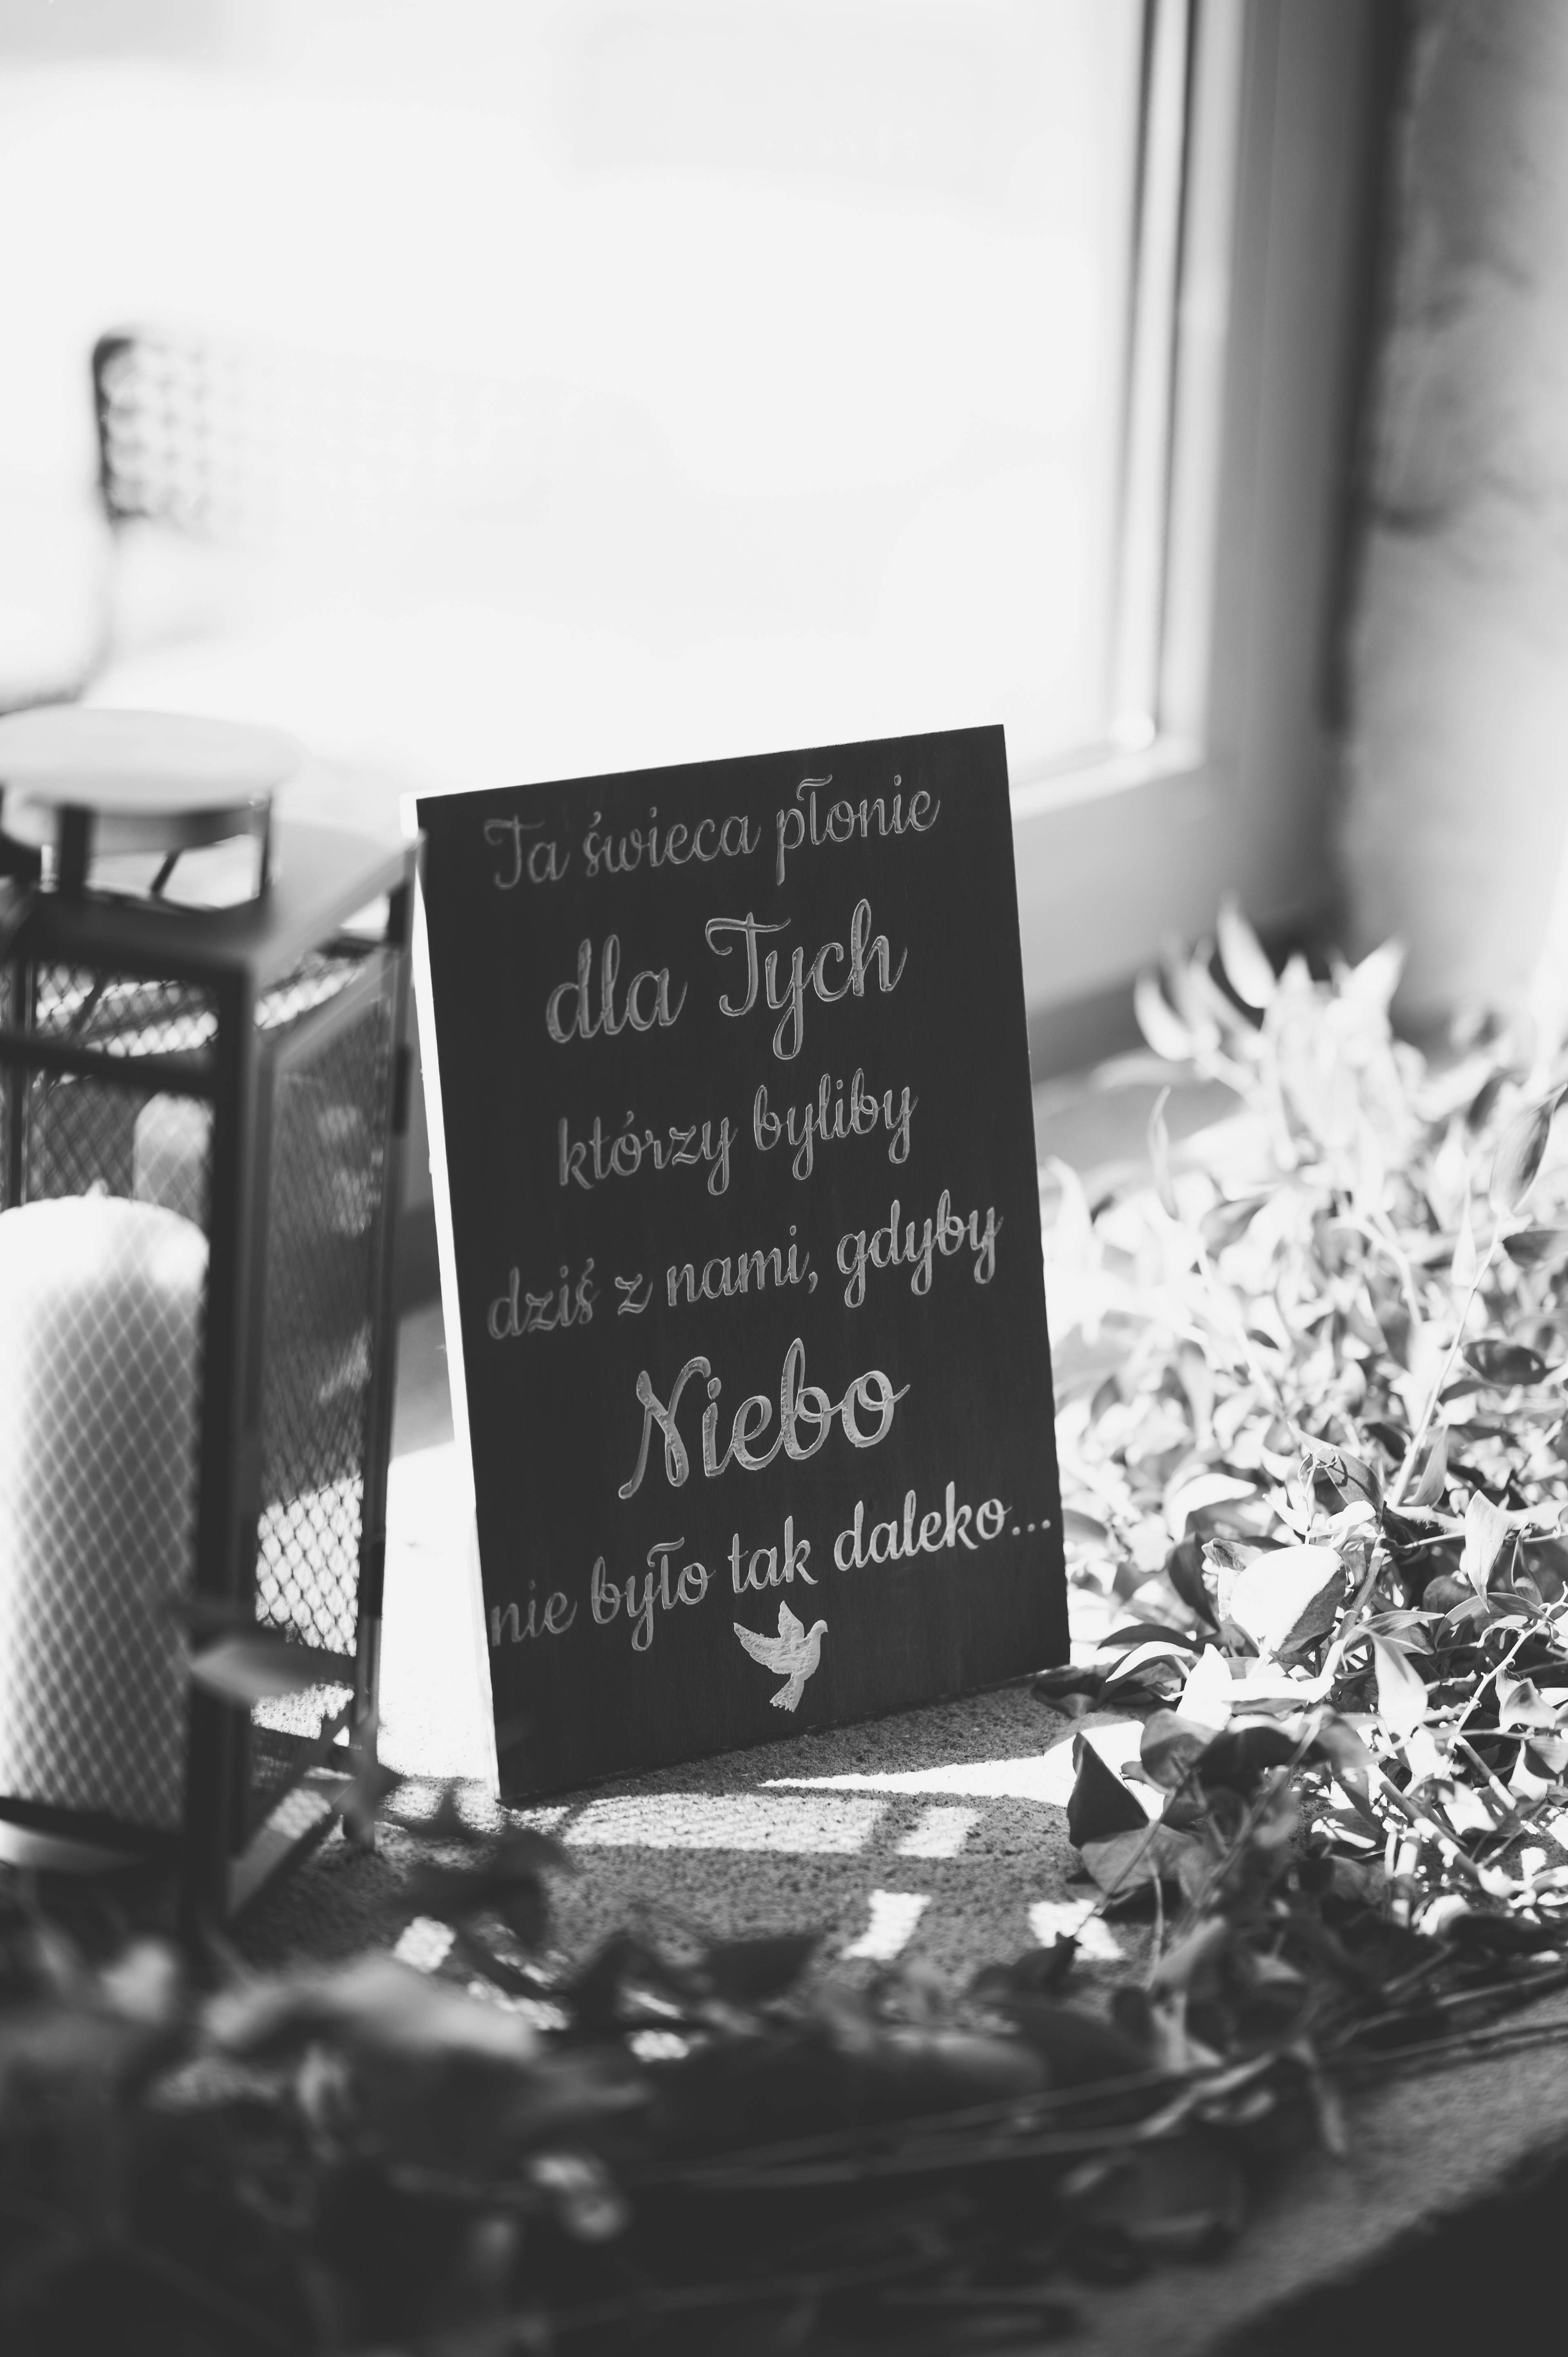 Ta świeca płonie
dla Tych
którzy byliby
dziś z nami, gdyby
Niebo
nie było tak daleko...